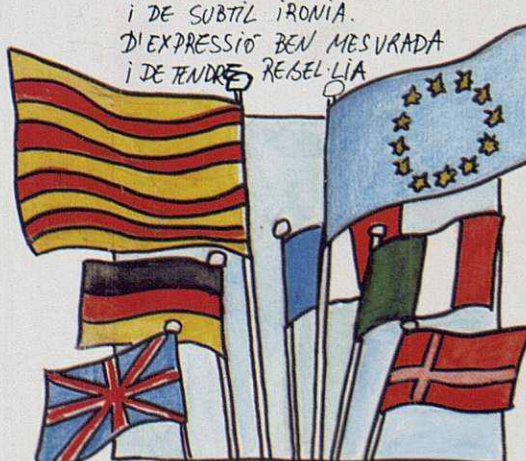 i DE SUBTIL iRONIA.
D'EXPRESSIÓ BEN MESURADA
i DE TENDRE REBEL·LIA